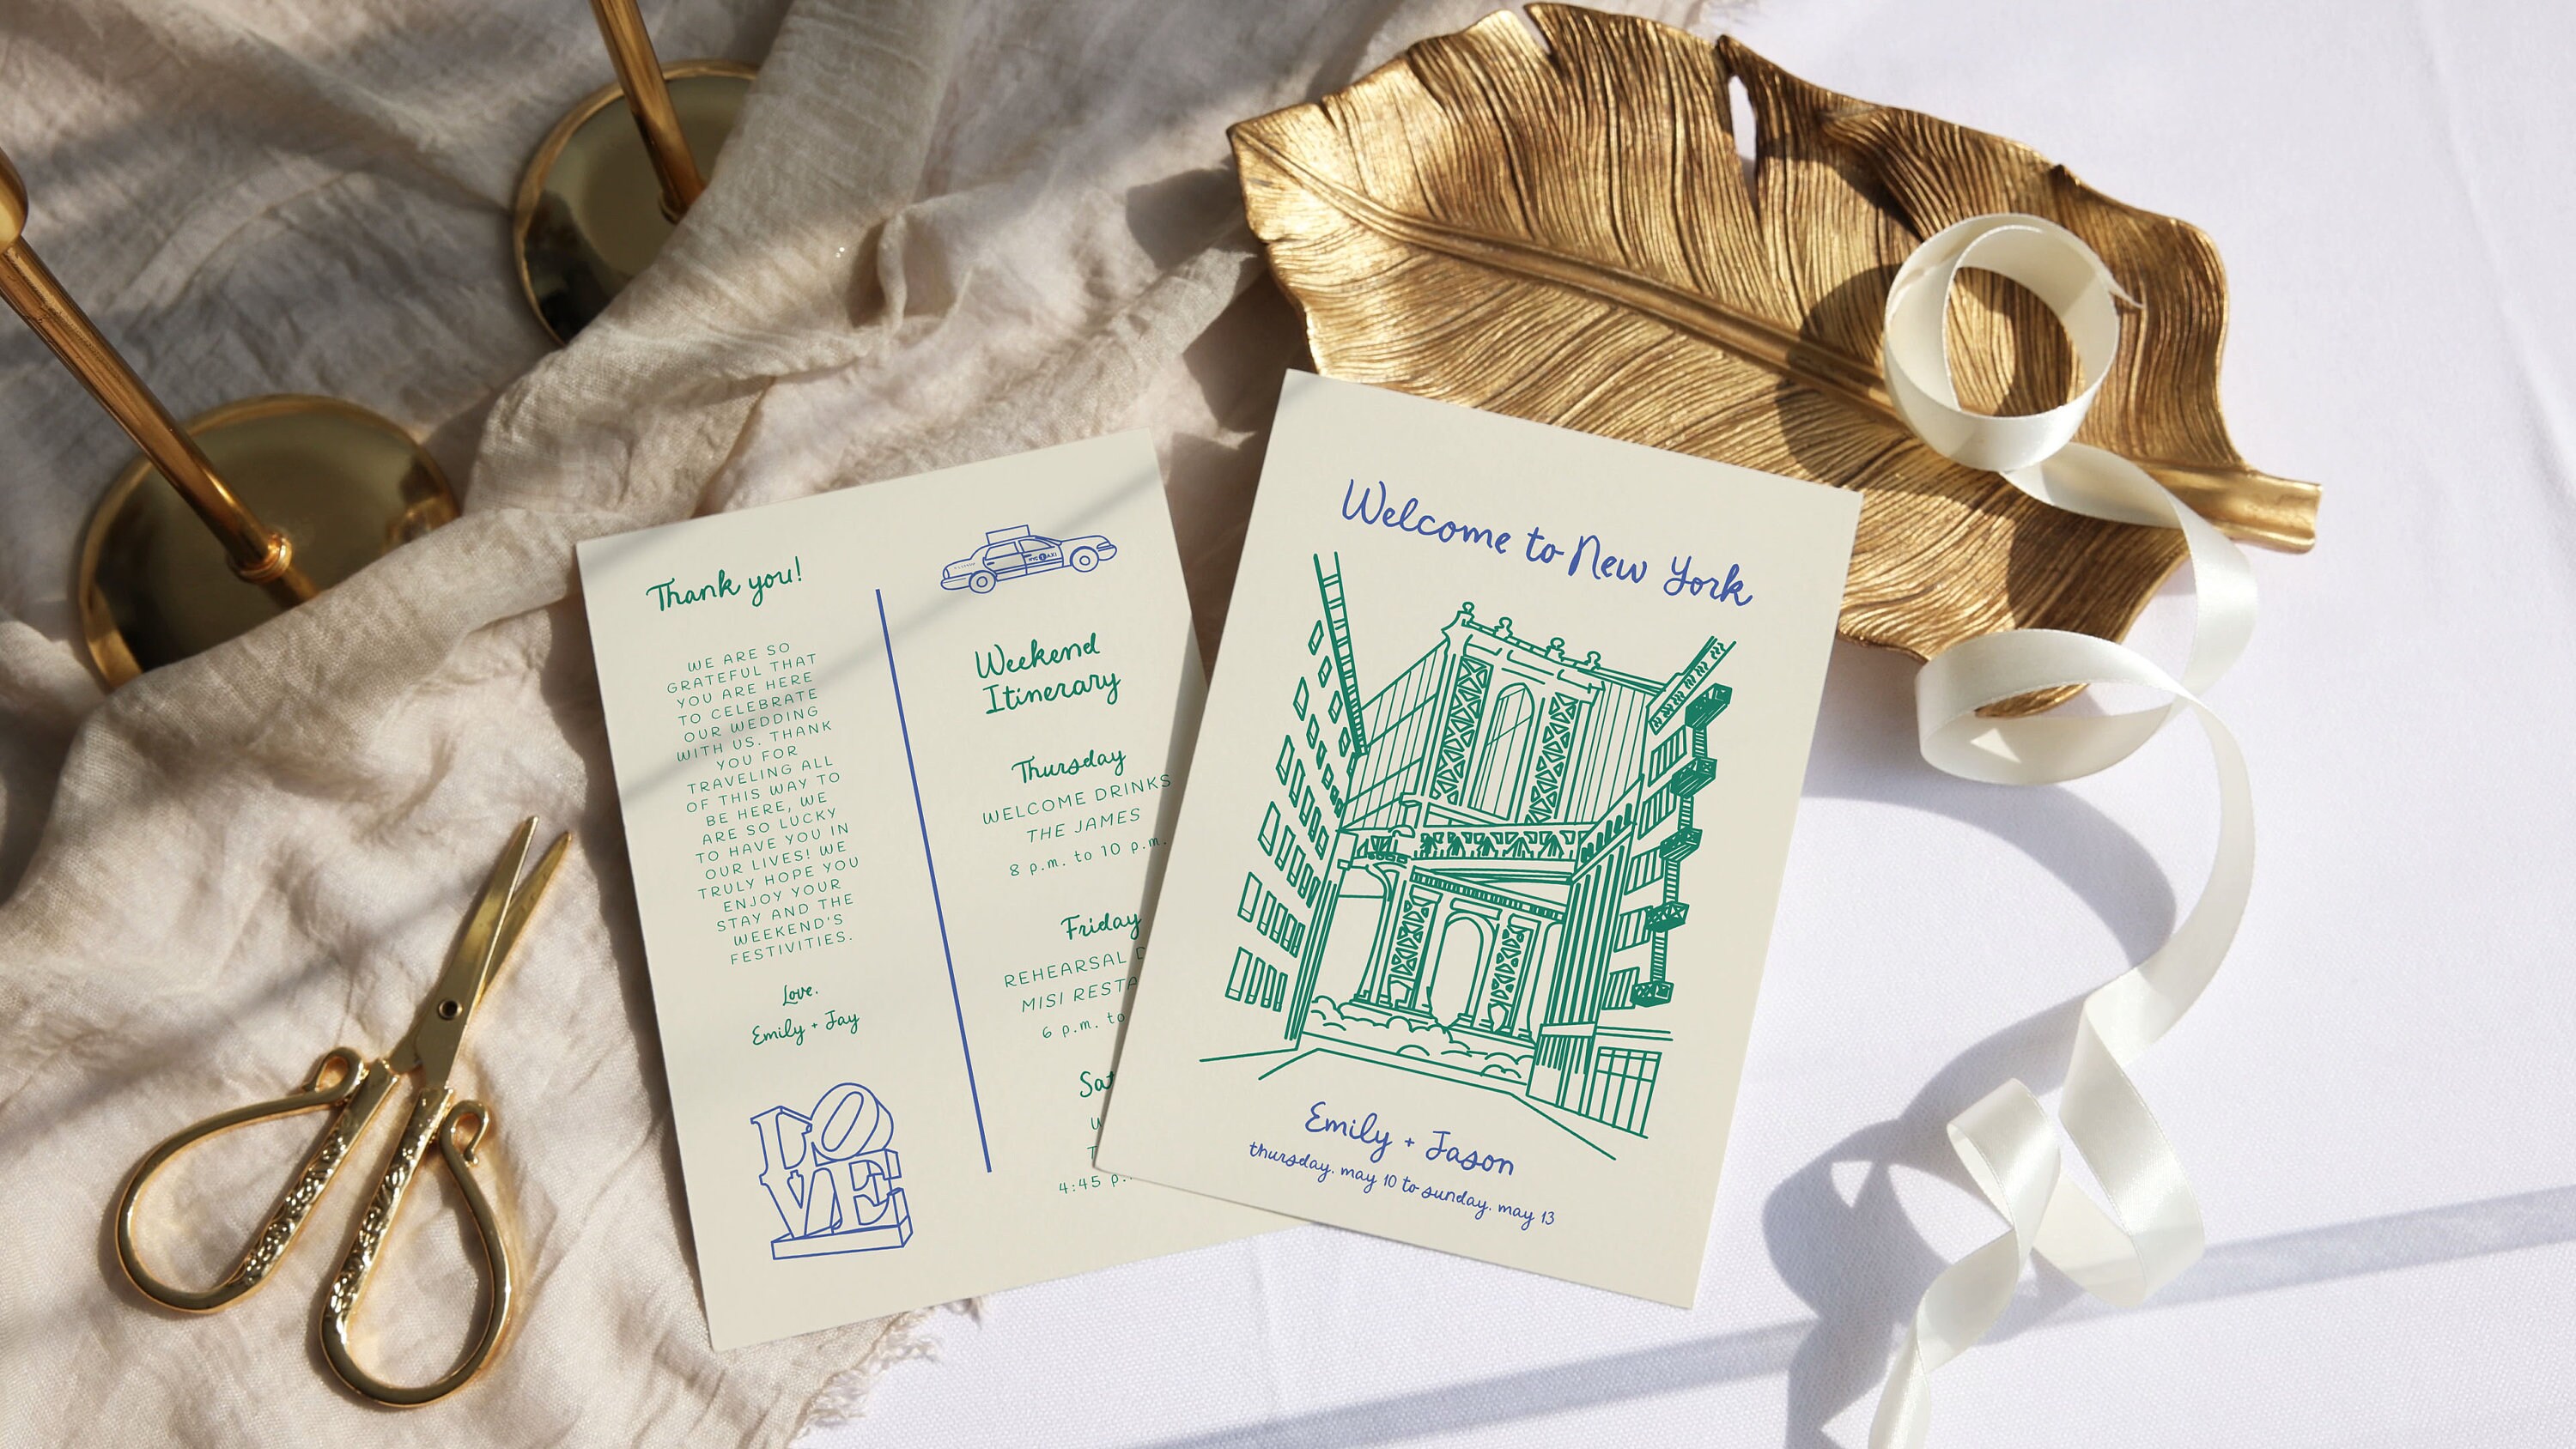 Thank you!
WE ARE SO
GRATEFUL THAT
YOU ARE HERE
TO CELEBRATE
OUR WEDDING
WITH US. THANK
YOU FOR
TRAVELING ALL
OF THIS WAY TO
BE HERE, WE
ARE SO LUCKY
TO HAVE YOU IN
OUR LIVES! WE
TRULY HOPE YOU
ENJOY YOUR
STAY AND THE
WEEKEND'S
FESTIVITIES.
Love,
Emily + Jay
LO
VE
NYC TAXI
Weekend
Itinerary
Thursday
WELCOME DRINKS
THE JAMES
8 p.m. to 10 p.m.
Friday
REHEARSAL
MISI
6 p.m. to
4:45
Welcome to New York
Emily + Jason
thursday, may 10 to sunday, may 13